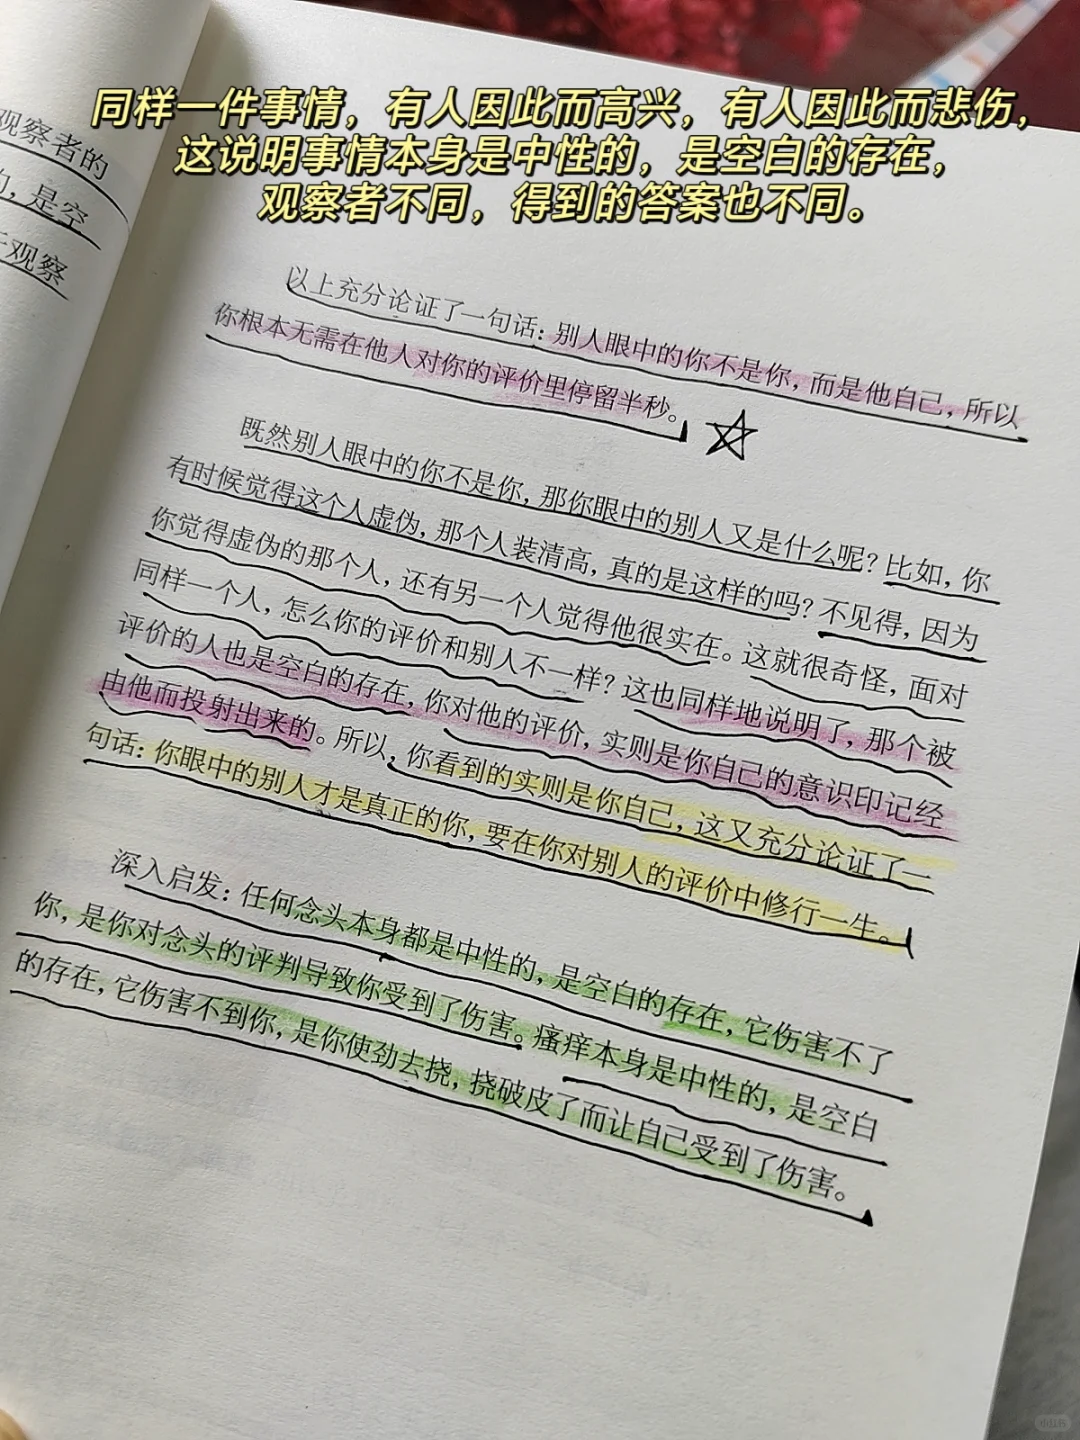 同样一件事情，有人因此而高兴，有人因此而悲伤，
这说明事情本身是中性的，是空白的存在，
观察者不同，得到的答案也不同。
观察者的
，是空
观察
以上充分论证了一句话：别人眼中的你不是你，而是他自己，所以
你根本无需在他人对你的评价里停留半秒。
既然别人眼中的你不是你，那你眼中的别人又是什么呢？比如，你
有时候觉得这个人虚伪，那个人装清高，真的是这样的吗？不见得，因为
你觉得虚伪的那个人，还有另一个人觉得他很实在。这就很奇怪，面对
同样一个人，怎么你的评价和别人不一样？这也同样地说明了，那个被
评价的人也是空白的存在，你对他的评价，实则是你自己的意识印记经
由他而投射出来的。所以，你看到的实则是你自己，这又充分论证了一
句话：你眼中的别人才是真正的你，要在你对别人的评价中修行一生。
深入启发：任何念头本身都是中性的，是空白的存在，它伤害不了
你，是你对念头的评判导致你受到了伤害。瘙痒本身是中性的，是空白
的存在，它伤害不到你，是你使劲去挠，挠破皮了而让自己受到了伤害。
小红书